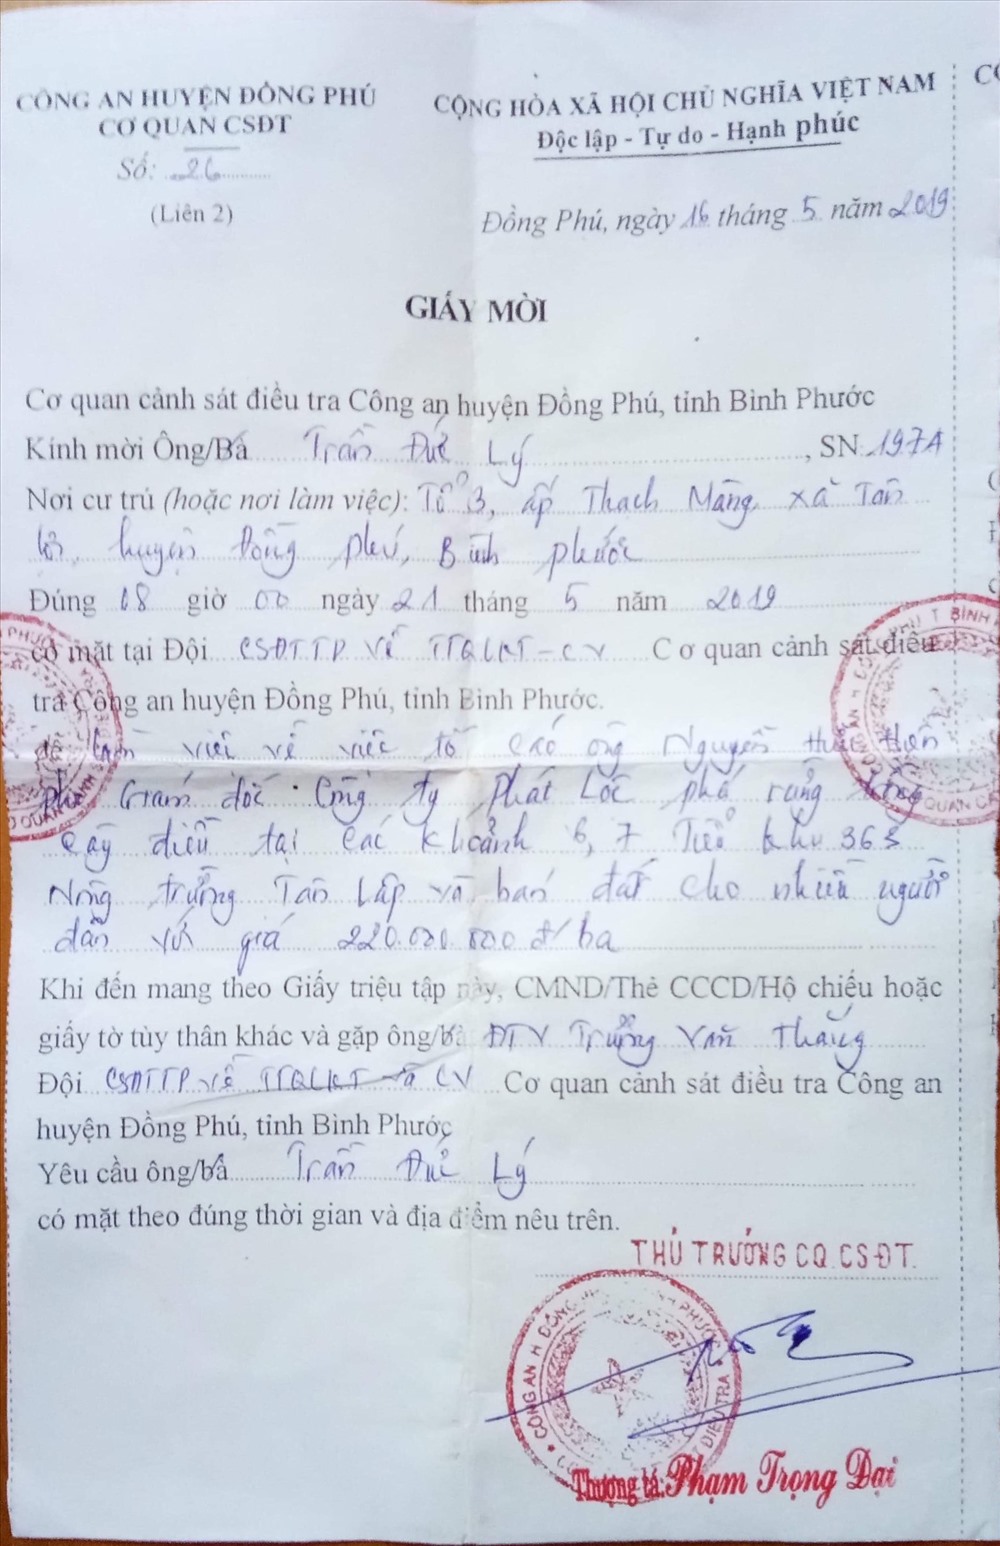 CÔNG AN HUYỆN ĐỒNG PHÚ
CƠ QUAN CSĐT
Số: 26
(Liên 2)
CỘNG HÒA XÃ HỘI CHỦ NGHĨA VIỆT NAM
Độc lập - Tự do - Hạnh phúc
Đồng Phú, ngày 16 tháng 5 năm 2019
GIẤY MỜI
Cơ quan cảnh sát điều tra Công an huyện Đồng Phú, tỉnh Bình Phước
Kính mời Ông/Bà Trần Đức Lý, SN 1974
Nơi cư trú (hoặc nơi làm việc): Tổ 3, ấp Thạch Màng, xã Tân
lợi, huyện Đồng Phú, Bình phước
Đúng 08 giờ 00 ngày 21 tháng 5 năm 2019
có mặt tại Đội CSĐTTP về TTQLKT-CV Cơ quan cảnh sát điều
tra Công an huyện Đồng Phú, tỉnh Bình Phước.
để làm việc về việc tố cáo ông Nguyễn Hiền
phó Giám đốc Công ty Phát Lộc phá rừng trồng
cây điều tại các khoảnh 6, 7 Tiểu khu 363
Nông trường Tân Lập và bán đất cho nhiều người
dân với giá 220.000.000 đ/ha
Khi đến mang theo Giấy triệu tập này, CMND/Thẻ CCCD/Hộ chiếu hoặc
giấy tờ tùy thân khác và gặp ông/bà ĐTV Trương Văn Thắng
Đội CSĐTTP về TTQLKT và CV Cơ quan cảnh sát điều tra Công an
huyện Đồng Phú, tỉnh Bình Phước
Yêu cầu ông/bà Trần Đức Lý
có mặt theo đúng thời gian và địa điểm nêu trên.
THỦ TRƯỞNG CQ.CSĐT.
CÔNG AN H ĐỒNG PHƯỚC ĐIỀU TRA
Thượng tá: Phạm Trọng Đại